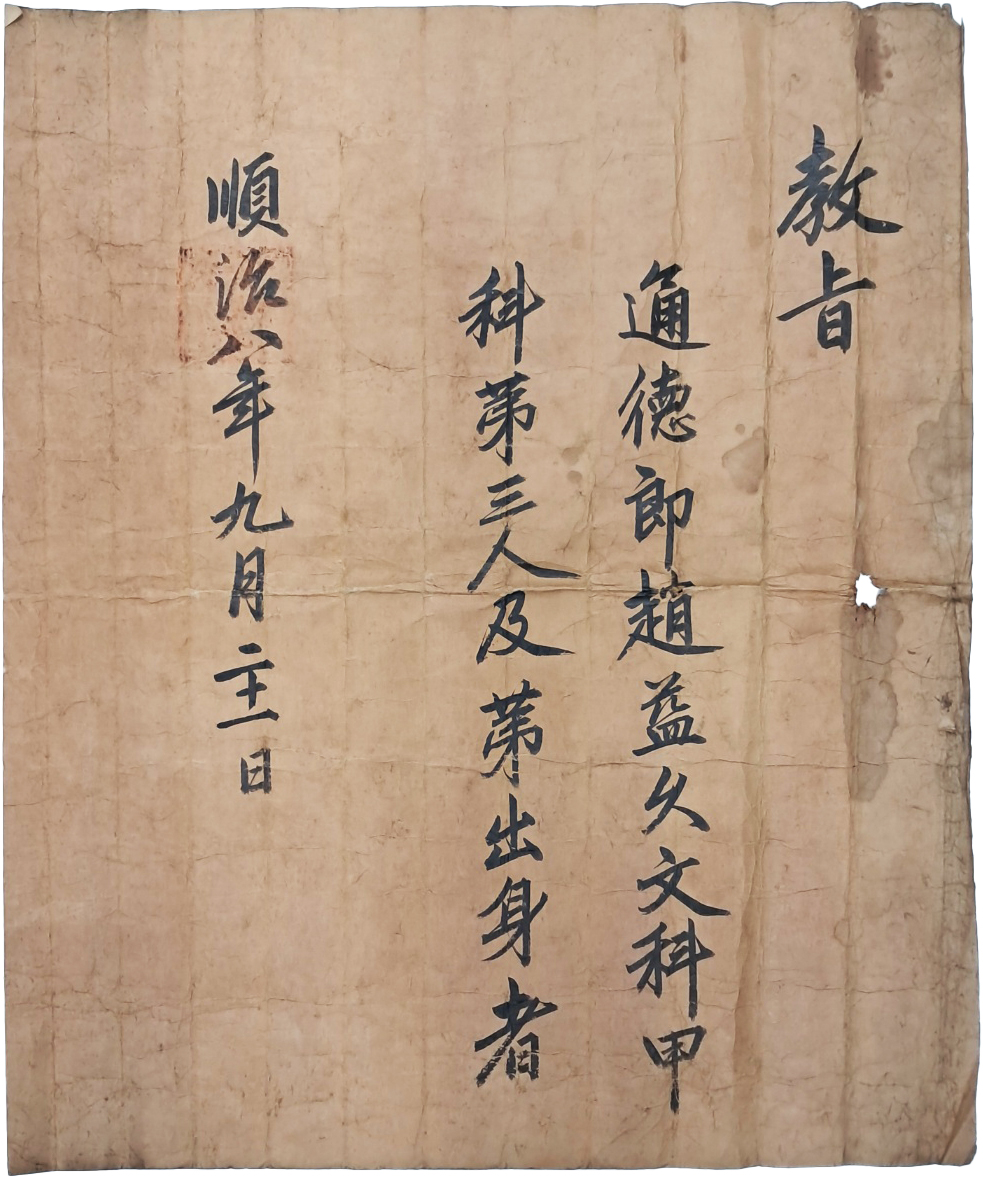 教旨
通德郎趙益久文科甲
科第三人及第出身者
順治八年九月二十一日